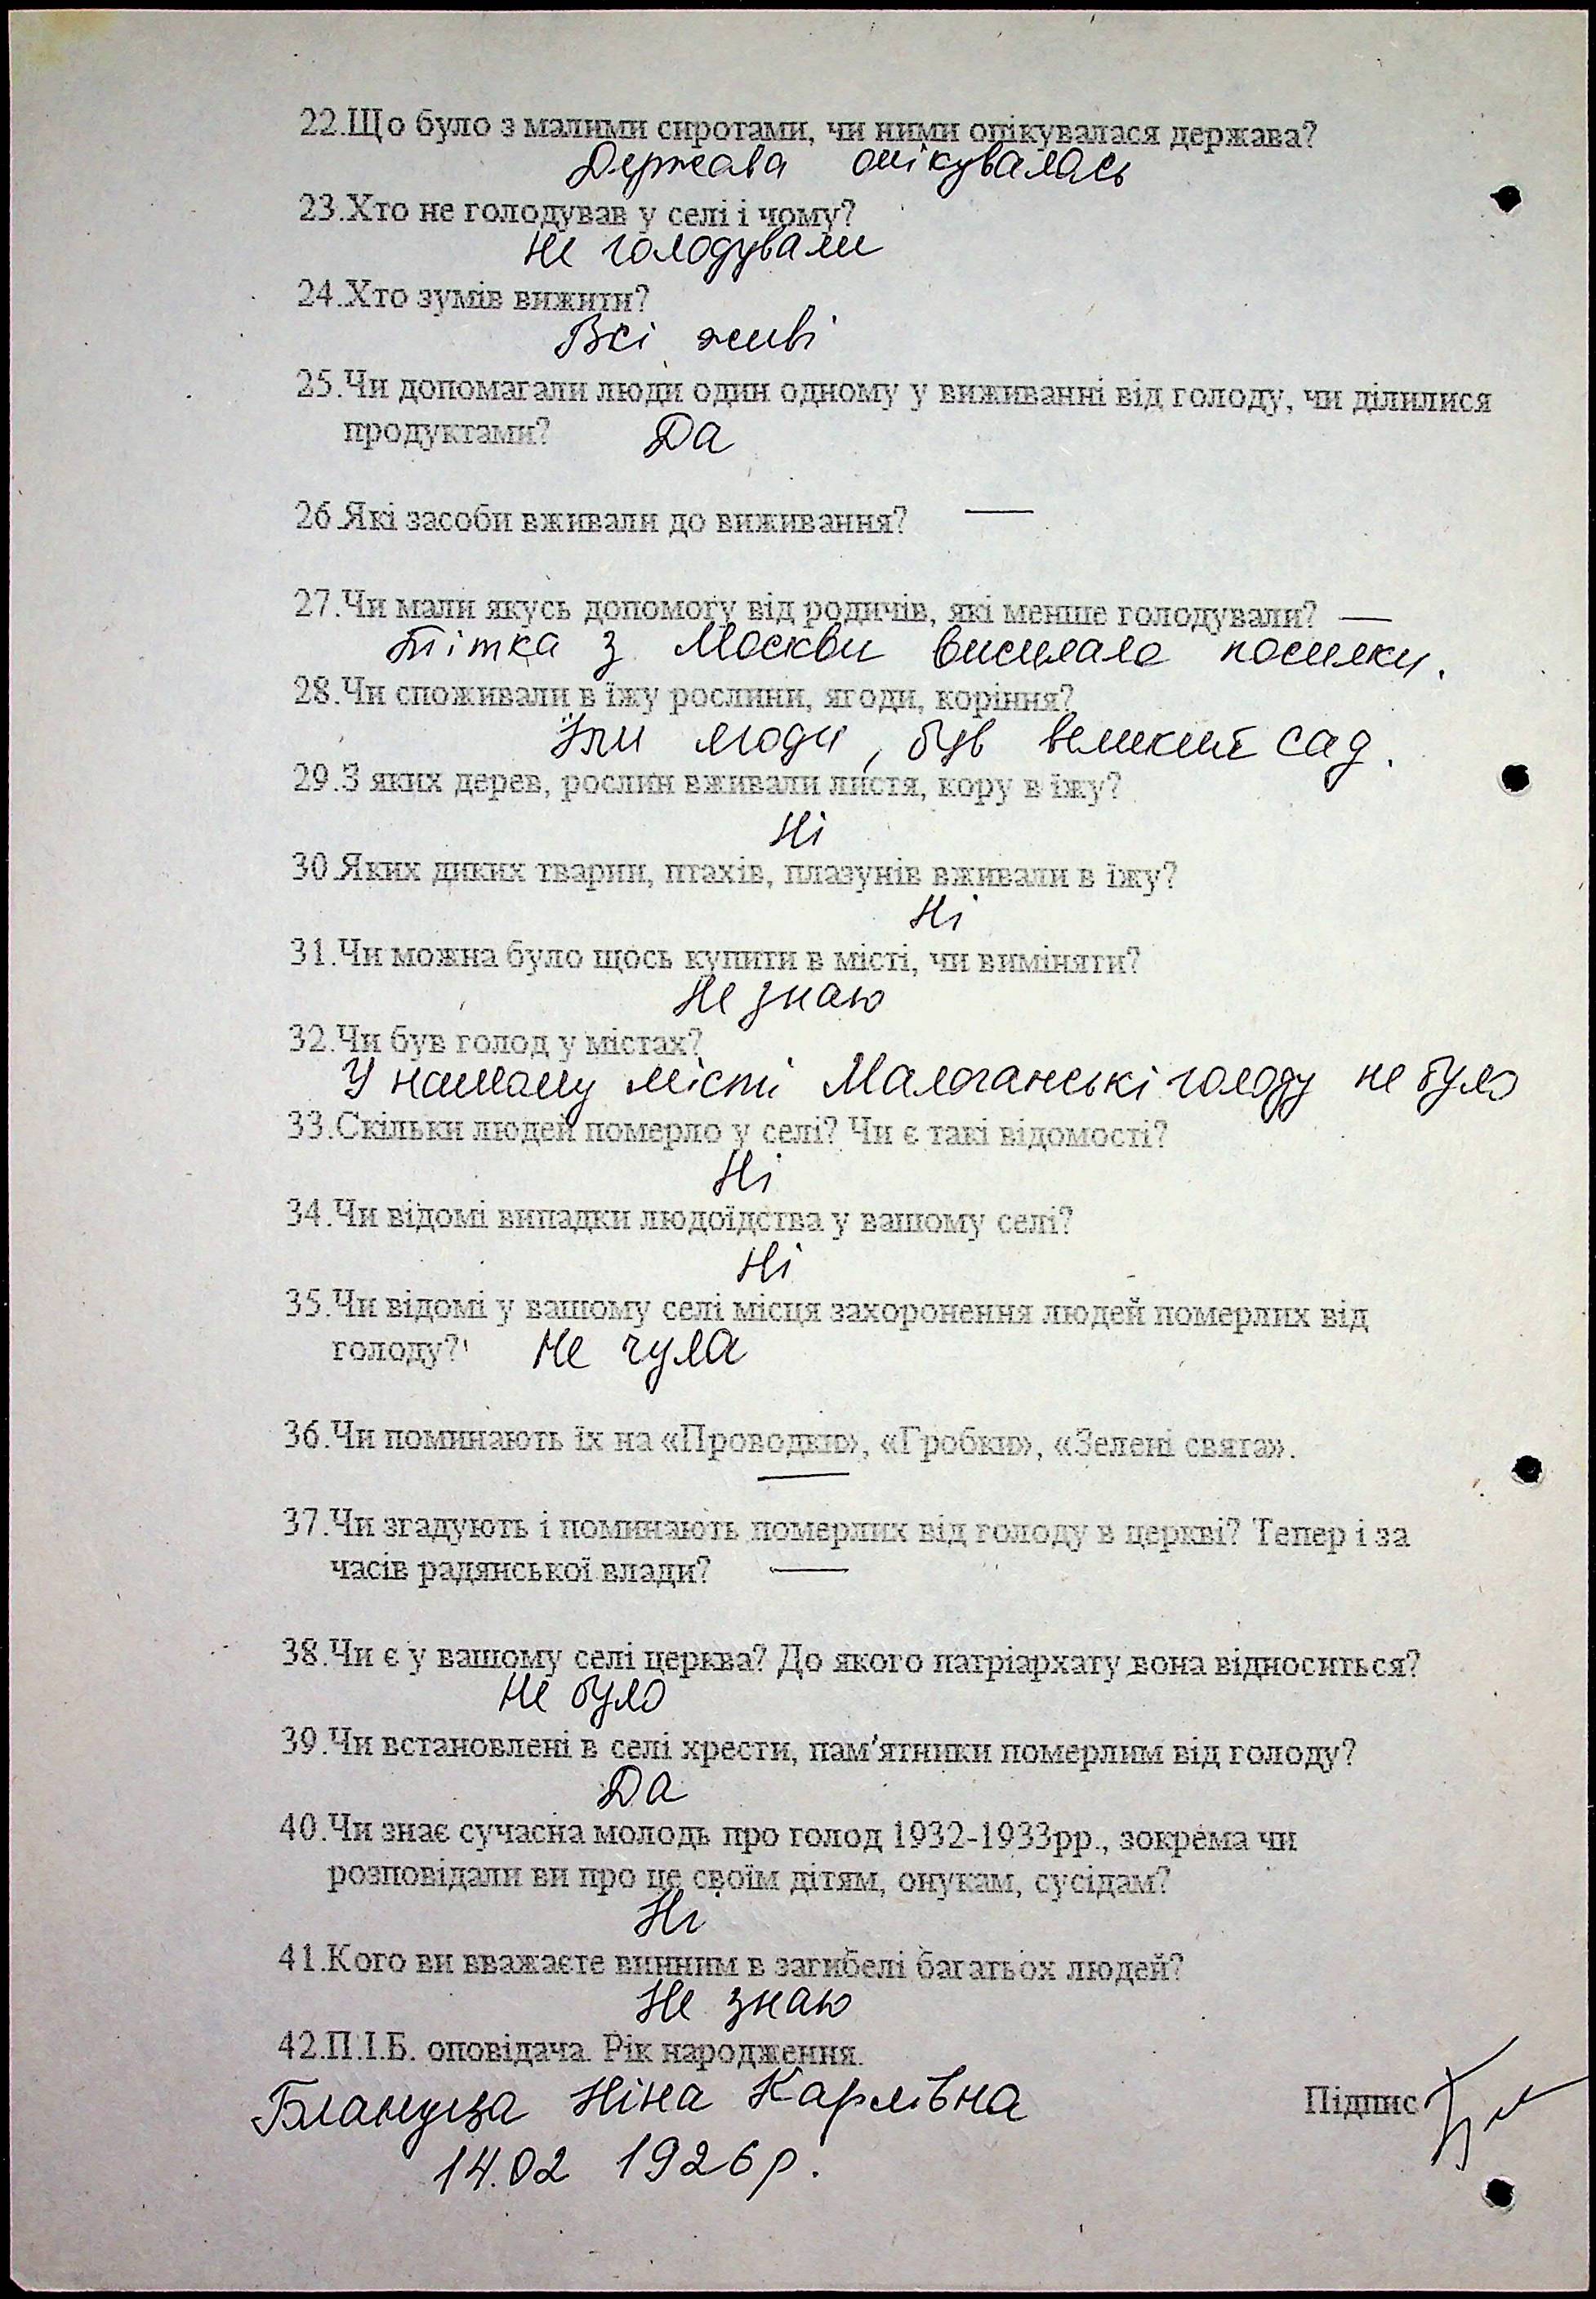 22.Що було з малими сиротами, чи ними опікувалася держава?
Держава опікувалась
23.Хто не голодував у селі і чому?
Не голодували
24.Хто зумів вижити?
Всі живі
25.Чи допомагали люди один одному у виживанні від голоду, чи ділилися
продуктами? Да
26.Які засоби вживали до виживання? —
27.Чи мали якусь допомогу від родичів, які менше голодували? —
Тітка з Москви висилала посилки.
28.Чи споживали в їжу рослини, ягоди, коріння?
Їли ягоди, був великий сад.
29.З яких дерев, рослин вживали листя, кору в їжу?
Ні
30.Яких диких тварин, птахів, плазунів вживали в їжу?
Ні
31.Чи можна було щось купити в місті, чи виміняти?
Не знаю
32.Чи був голод у містах?
У нашому місті голоду не було
33.Скільки людей померло у селі? Чи є такі відомості?
Ні
34.Чи відомі випадки людоїдства у вашому селі?
Ні
35.Чи відомі у вашому селі місця захоронення людей померлих від
голоду? Не чула
36.Чи поминають їх на «Проводки», «Гробки», «Зелені свята».
—
37.Чи згадують і поминають померлих від голоду в церкві? Тепер і за
часів радянської влади? —
38.Чи є у вашому селі церква? До якого патріархату вона відноситься?
Не було
39.Чи встановлені в селі хрести, пам'ятники померлим від голоду?
Да
40.Чи знає сучасна молодь про голод 1932-1933рр., зокрема чи
розповідали ви про це своїм дітям, онукам, сусідам?
Ні
41.Кого ви вважаєте винним в загибелі багатьох людей?
Не знаю
42.П.І.Б. оповідача. Рік народження.
Ніна Карлівна
Підпис
14.02 1926р.